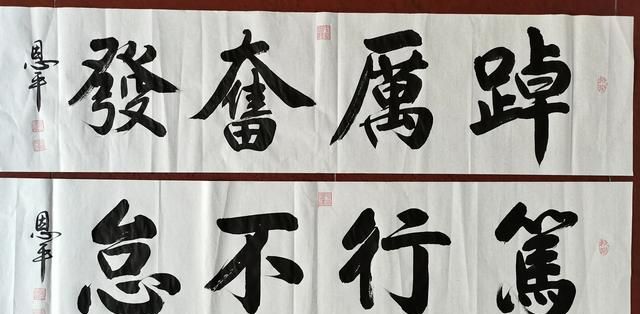 踔厲奮發
恩平
篤行不怠
恩平